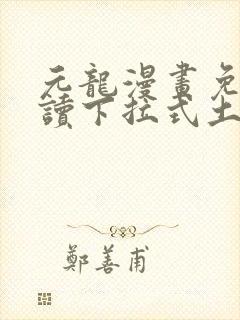 元龍漫畫免
讀下拉式土
鄭善甫